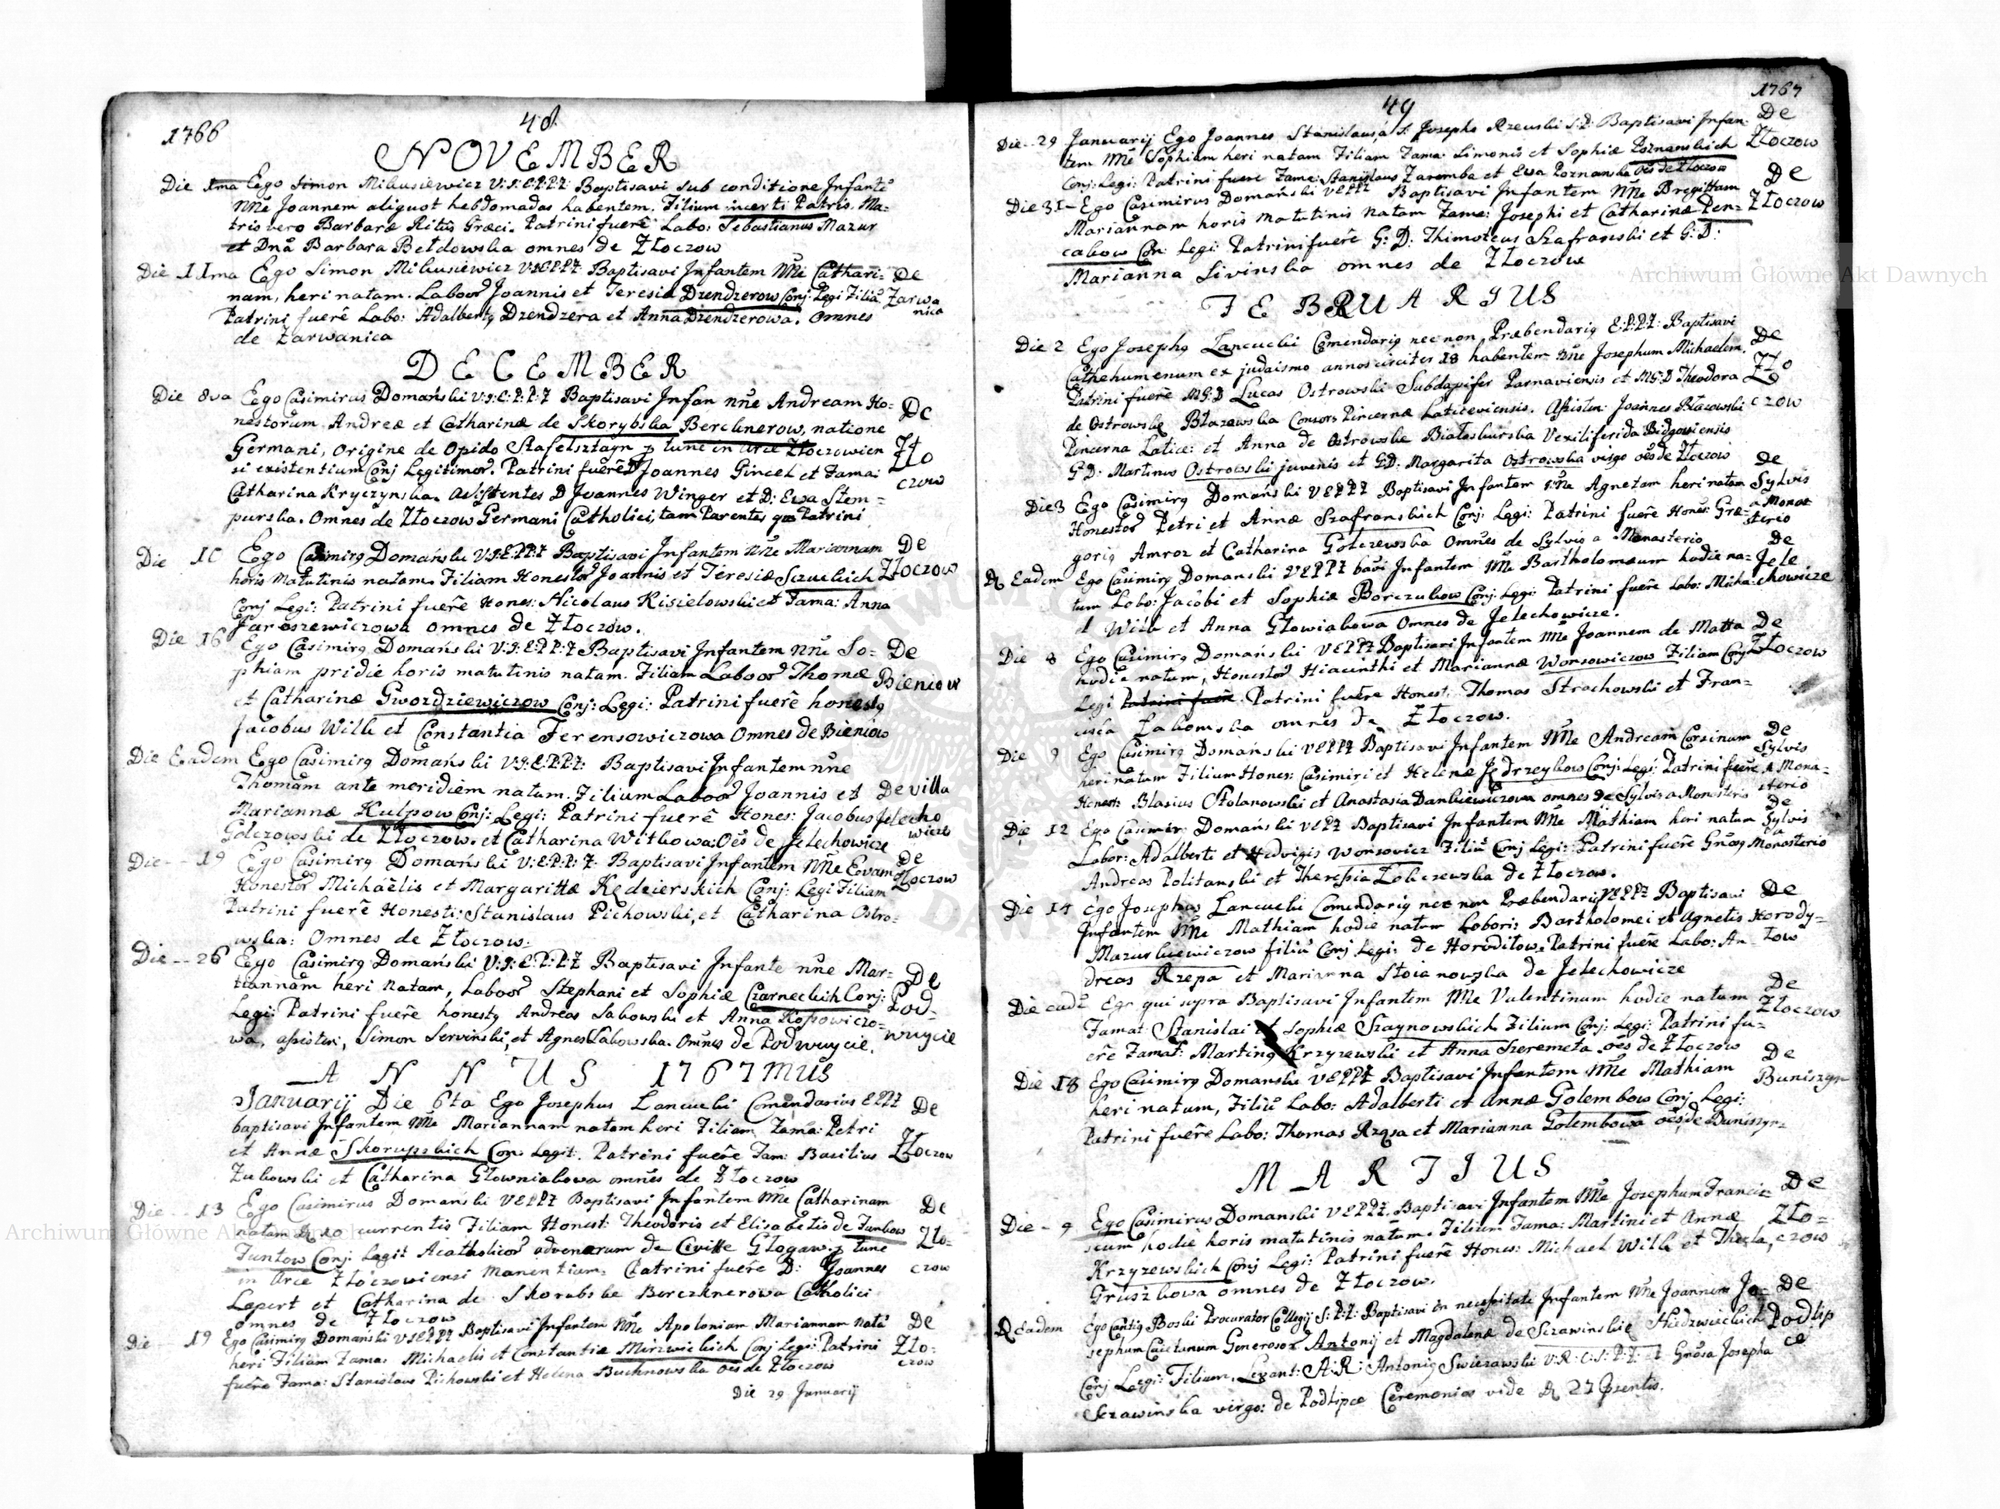 1766
48.
NOVEMBER
Die 1ma Ego Simon Mikusiewicz V:S:E:P:P:Z: Baptisavi sub conditione Infante
nne Joannem aliquot hebdomadas habentem. Filium incerti Patris. Ma-
tris vero Barbaræ Ritus Græci. Patrini fuere Labo: Sebastianus Mazur
et Dna Barbara Betdowska omnes de Złoczow
Die 11ma Ego Simon Mikusiewicz Baptisavi Infantem Nne Cathari- De
nam, heri natam. Laboor Joannis et Teresiæ Dzendzerow Conj: Legi: Filia Zarwa
Patrini fuere Labo: Adalbert9 Dzendzera et Anna Dzendzerowa. Omnes nica
de Zarwanica
DECEMBER
Die 8va Ego Casimirus Domański V:S:E:P:P:Z Baptisavi Infan nne Andream Ho- De
nestorum Andreæ et Catharinæ de Skorybska Berclinerow, natione
Germani, Origine de Opido Stafelsztayn p tunc in Arce Złoczowien Zło
si existentium Conj Legitimor. Patrini fuere D Joannes Gincel et Fama: czow
Catharina Kryczynska. Assistentes D Joannes Winger et D: Ewa Stem-
purska. Omnes de Złoczow Germani Catholici, tam Parentes qm Patrini
Die 10 Ego Casimir9 Domański V:S:E:P:P:Z Baptisavi Infantem nne Mariannam De
horis matutinis natam. Filiam Honestor Joannis et Teresiæ Szuckich Złoczow
Conj Legi: Patrini fuere Hones: Nicolaus Kisielowski et Fama: Anna
Jaroszewiczowa omnes de Złoczow.
Die 16 Ego Casimir9 Domański V:S:E:P:P:Z Baptisavi Infantem nne So- De
phiam pridie horis matutinis natam. Filiam Laboor Thomæ Bieniow
et Catharinæ Gwozdziewiczow Conj: Legi: Patrini fuere honest9
Jacobus Wilk et Constantia Ferensowiczowa Omnes de Bieniow
Die Eadem Ego Casimir9 Domański V:S:E:P:P:Z: Baptisavi Infantem nne
Thomam ante meridiem natum. Filium Laboor Joannis et De villa
Mariannæ Kulpow Conj: Legi: Patrini fuere Hones: Jacobus Jelecho
Golczowski de Złoczow. et Catharina Witkowa Oes de Jelechowice wice
Die 19 Ego Casimir9 Domański V:S:E:P:P:Z: Baptisavi Infantem Nne Evam De
Honestor Michaelis et Margarittæ Kędzierskich Conj: Legi Filiam Złoczow
Patrini fuere Honesti: Stanislaus Pichowski, et Catharina Ostro-
wska: Omnes de Złoczow.
Die 26 Ego Casimir9 Domański V:S:E:P:P:Z Baptisavi Infante nne Mar-
iannam heri natam, Laboor Stephani et Sophiæ Czarneckich Conj: De
Legi: Patrini fuere honest9 Andreas Sabowski et Anna Kopowiczo- Pod-
wa, assisten, Simon Serwinski, et Agnes Labowska. Omnes de Podwuycie. wuycie
ANNUS 1767mus
Januarij Die 6ta Ego Josephus Lancucki Comendarius EPPZ De
baptisavi Infantem Nne Mariannam natam heri Filiam Fama: Petri
et Annæ Skorupskich Con: Legit. Patrini fuere Fam: Basilius Złoczow
Zukowski et Catharina Głowniakowa omnes de Złoczow
Die 13 Ego Casimirus Domański VEPPZ Baptisavi Infantem Nne Catharinam De
natam currentis Filiam Honest: Theodoris et Elisabethis de Funkow
Funtow Conj: Legit Acatholicor advenarum de Civitte Głogaw p tunc Zło-
in Arce Złoczowiensi manentium. Patrini fuere D: Joannes czow
Lapert et Catharina de Skorabske Bercknerowa Catholici
omnes de Złoczow
Die 19 Ego Casimir9 Domański VSEPPZ Baptisavi Infantem Nne Apoloniam Mariannam nata De
heri Filiam Fama: Michaelis et Constantiæ Mirzwickich Conj Legi: Patrini Zło-
fuere Fama: Stanislaus Pichowski et Helena Buchnowska oes de Złoczow czow
Die 29 Januarij
49
1767
Die 29 Januarij Ego Joannes Stanislaus a S. Josepho Rzewski S:P: Baptisavi Infan- De
tem Nne Sophiam heri natam Filiam Fama: Simonis et Sophiæ Poznanskich Złoczow
Conj: Legi: Patrini fuere Fame: Stanislaus Zaremba et Ewa Poznanska oes de Złoczow
Die 31 Ego Casimirus Domański VEPPZ Baptisavi Infantem Nne Bregittam De
Mariannam horis matutinis natam Fama: Josephi et Catharinæ Pen- Złoczow
cakow Con: Legi: Patrini fuere G: D: Thimoteus Szafranski et G: D:
Marianna Sivinska omnes de Złoczow
FEBRUARIUS
Die 2 Ego Joseph9 Lancucki Comendari9 nec non Præbendari9 E:P:P:Z: Baptisavi De
Cathehumenum ex judaismo annos circiter 18 habentem nne Josephum Michaelem. Zło
Patrini fuere M:G:D Lucas Ostrowski Subdapifer Parnaviensis et M:G:D Theodora
de Ostrowskie Błazowska Consors Pincernæ Laticeviensis. Assisten: Joannes Błazowski czow
Pincerna Latice: et Anna de Ostrowskie Białoskurska Vexiliferida Bidgoviensis
G:D: Martinus Ostrowski juvenis et G:D: Margarita Ostrowska virgo oes de Złoczow
Die 3 Ego Casimir9 Domański VEPPZ Baptisavi Infantem nne Agnetam heri natam De Sylvis
Honestor Petri et Annæ Szafranskich Conj: Legi: Patrini fuere Hones: Gre- a Monas
gori9 Amroz et Catharina Golczewska Omnes de Sylvis a Monasterio terio
D Eadem Ego Casimir9 Domański VEPPZ bavi Infantem Nne Bartholomæum hodie na- De Jele
tum Labo: Jacobi et Sophiæ Borczukow Conj: Legi: Patrini fuere Labo: Micha- chowice
el Wilk et Anna Głowiakowa Omnes de Jelechowice.
Die 8 Ego Casimir9 Domański VEPPZ Baptisavi Infantem Nne Joannem de Matta De
hodie natum, Honestor Hiacinthi et Mariannæ Wonsowiczow Filiam Conj Złoczow
Legi Patrini fuere. Patrini fuere Honest: Thomas Strachowski et Fran-
cisca Zakomska omnes de Złoczow.
Die 9 Ego Casimir9 Domański VEPPZ Baptisavi Infantem Nne Andream Corsinum De
heri natam Filium Hones: Casimiri et Helenæ Jędrzeykow Conj: Legi: Patrini fuere Sylvis a Mona-
Honest: Blasius Stolanowski et Anastasia Dankiewiczowa omnes de Sylvis a Monasterio sterio
Die 12 Ego Casimir: Domański VEPPZ Baptisavi Infantem Nne Mathiam heri natum De Sylvis
Labor: Adalberti et Hedvigis Wonsowicz Filiu Conj Legi: Patrini fuere Gnosg a Monasterio
Andreas Politanski et Theressia Zobczewska de Złoczow.
Die 14 Ego Josephus Lancucki Comendari9 nec non Præbendari9 VEPPZ Baptisavi De
Infantem Nne Mathiam hodie natum Labori: Bartholomei et Agnetis Horody-
Mazurkiewiczow filiu Conj Legi: de Horodiłow. Patrini fuere Labo: An- łow
dreas Rzepa et Marianna Stoianowska de Jelechowicze
Die eade Ego qui supra Baptisavi Infantem Nne Valentinum hodie natum De
Famat Stanislai et Sophiæ Szaynowskich Filium Conj: Legi: Patrini fu- Złoczow
ere Famat: Martin9 Krzyzewski et Anna Szeremeta oes de Złoczow
Die 18 Ego Casimir9 Domanski VEPPZ Baptisavi Infantem Nne Mathiam De
heri natum, Filiu Labo: Adalberti et Annæ Golembow Conj Legi: Buniszyn
Patrini fuere Labo: Thomas Rząsa et Marianna Golembowa oes de Buniszyn-
MARTIUS
Die 9 Ego Casimirus Domanski VEPPZ. Baptisavi Infantem Nne Josephum Franci- De
scum hodie horis matutinis natam. Filium Fama: Martini et Annæ Zło-
Krzyzewskich Conj Legi: Patrini fuere Hones: Michael Wilk et Thecla, czow
Gruszkowa omnes de Złoczow.
D Eadem Ego Boski Procurator Collegij S: P: Z: Baptisavi in necessitate Infantem Nne Joannem Jo- De
sephum Cantianum Generosor Antonij et Magdalenæ de Szrawinskie Niedzwieckich Podlip
Conj Legi: Filium, Levant: A: R: Antoni9 Swiezawski V: R: C: S: P: Z: et Gnosa Josepha ce
Szrawinska virgo: de Podlipce Ceremonias vide D 27 Præntis.
Archiwum Główne Akt Dawnych